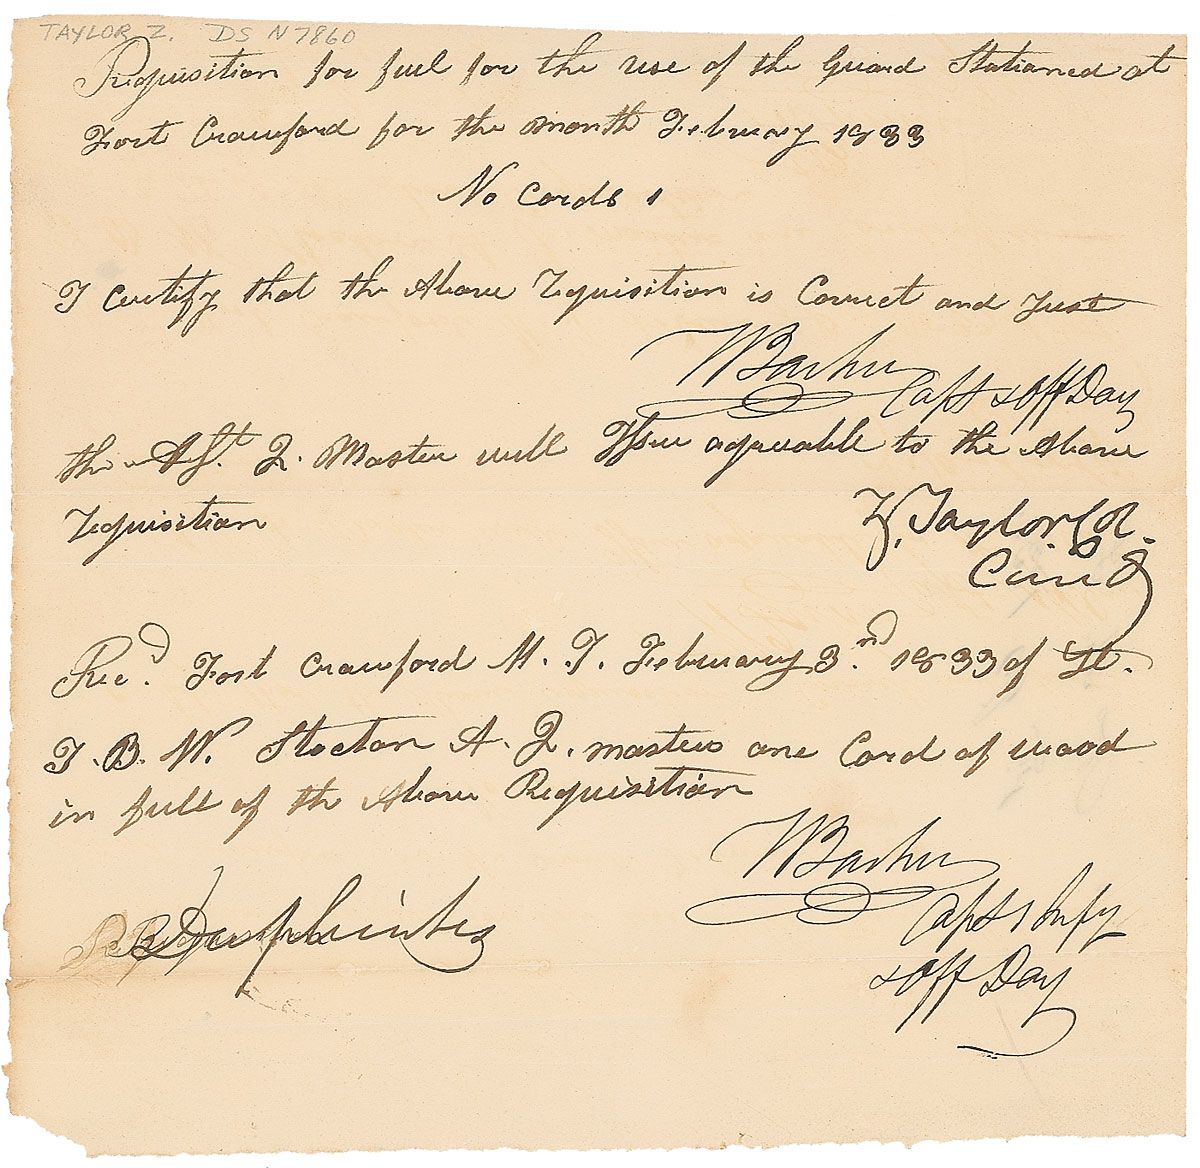 TAYLOR Z. DS N7860
Requisition for fuel for the use of the Guard Stationed at
Fort Crawford for the month February 1833
No Cords 1
I Certify that the Above Requisition is Correct and Just
W Barker Capt & Off Day
the Asst. Q. Master will Issue agreeable to the Above
Requisition
Z. Taylor Col.
Com'd
Rec'd. Fort Crawford M. T. February 3rd. 1833 of Lt.
T. B. W. Stocton A. Q. masters one Cord of wood
in full of the Above Requisition
W Barker
Capt 1 Infy
& Off Day